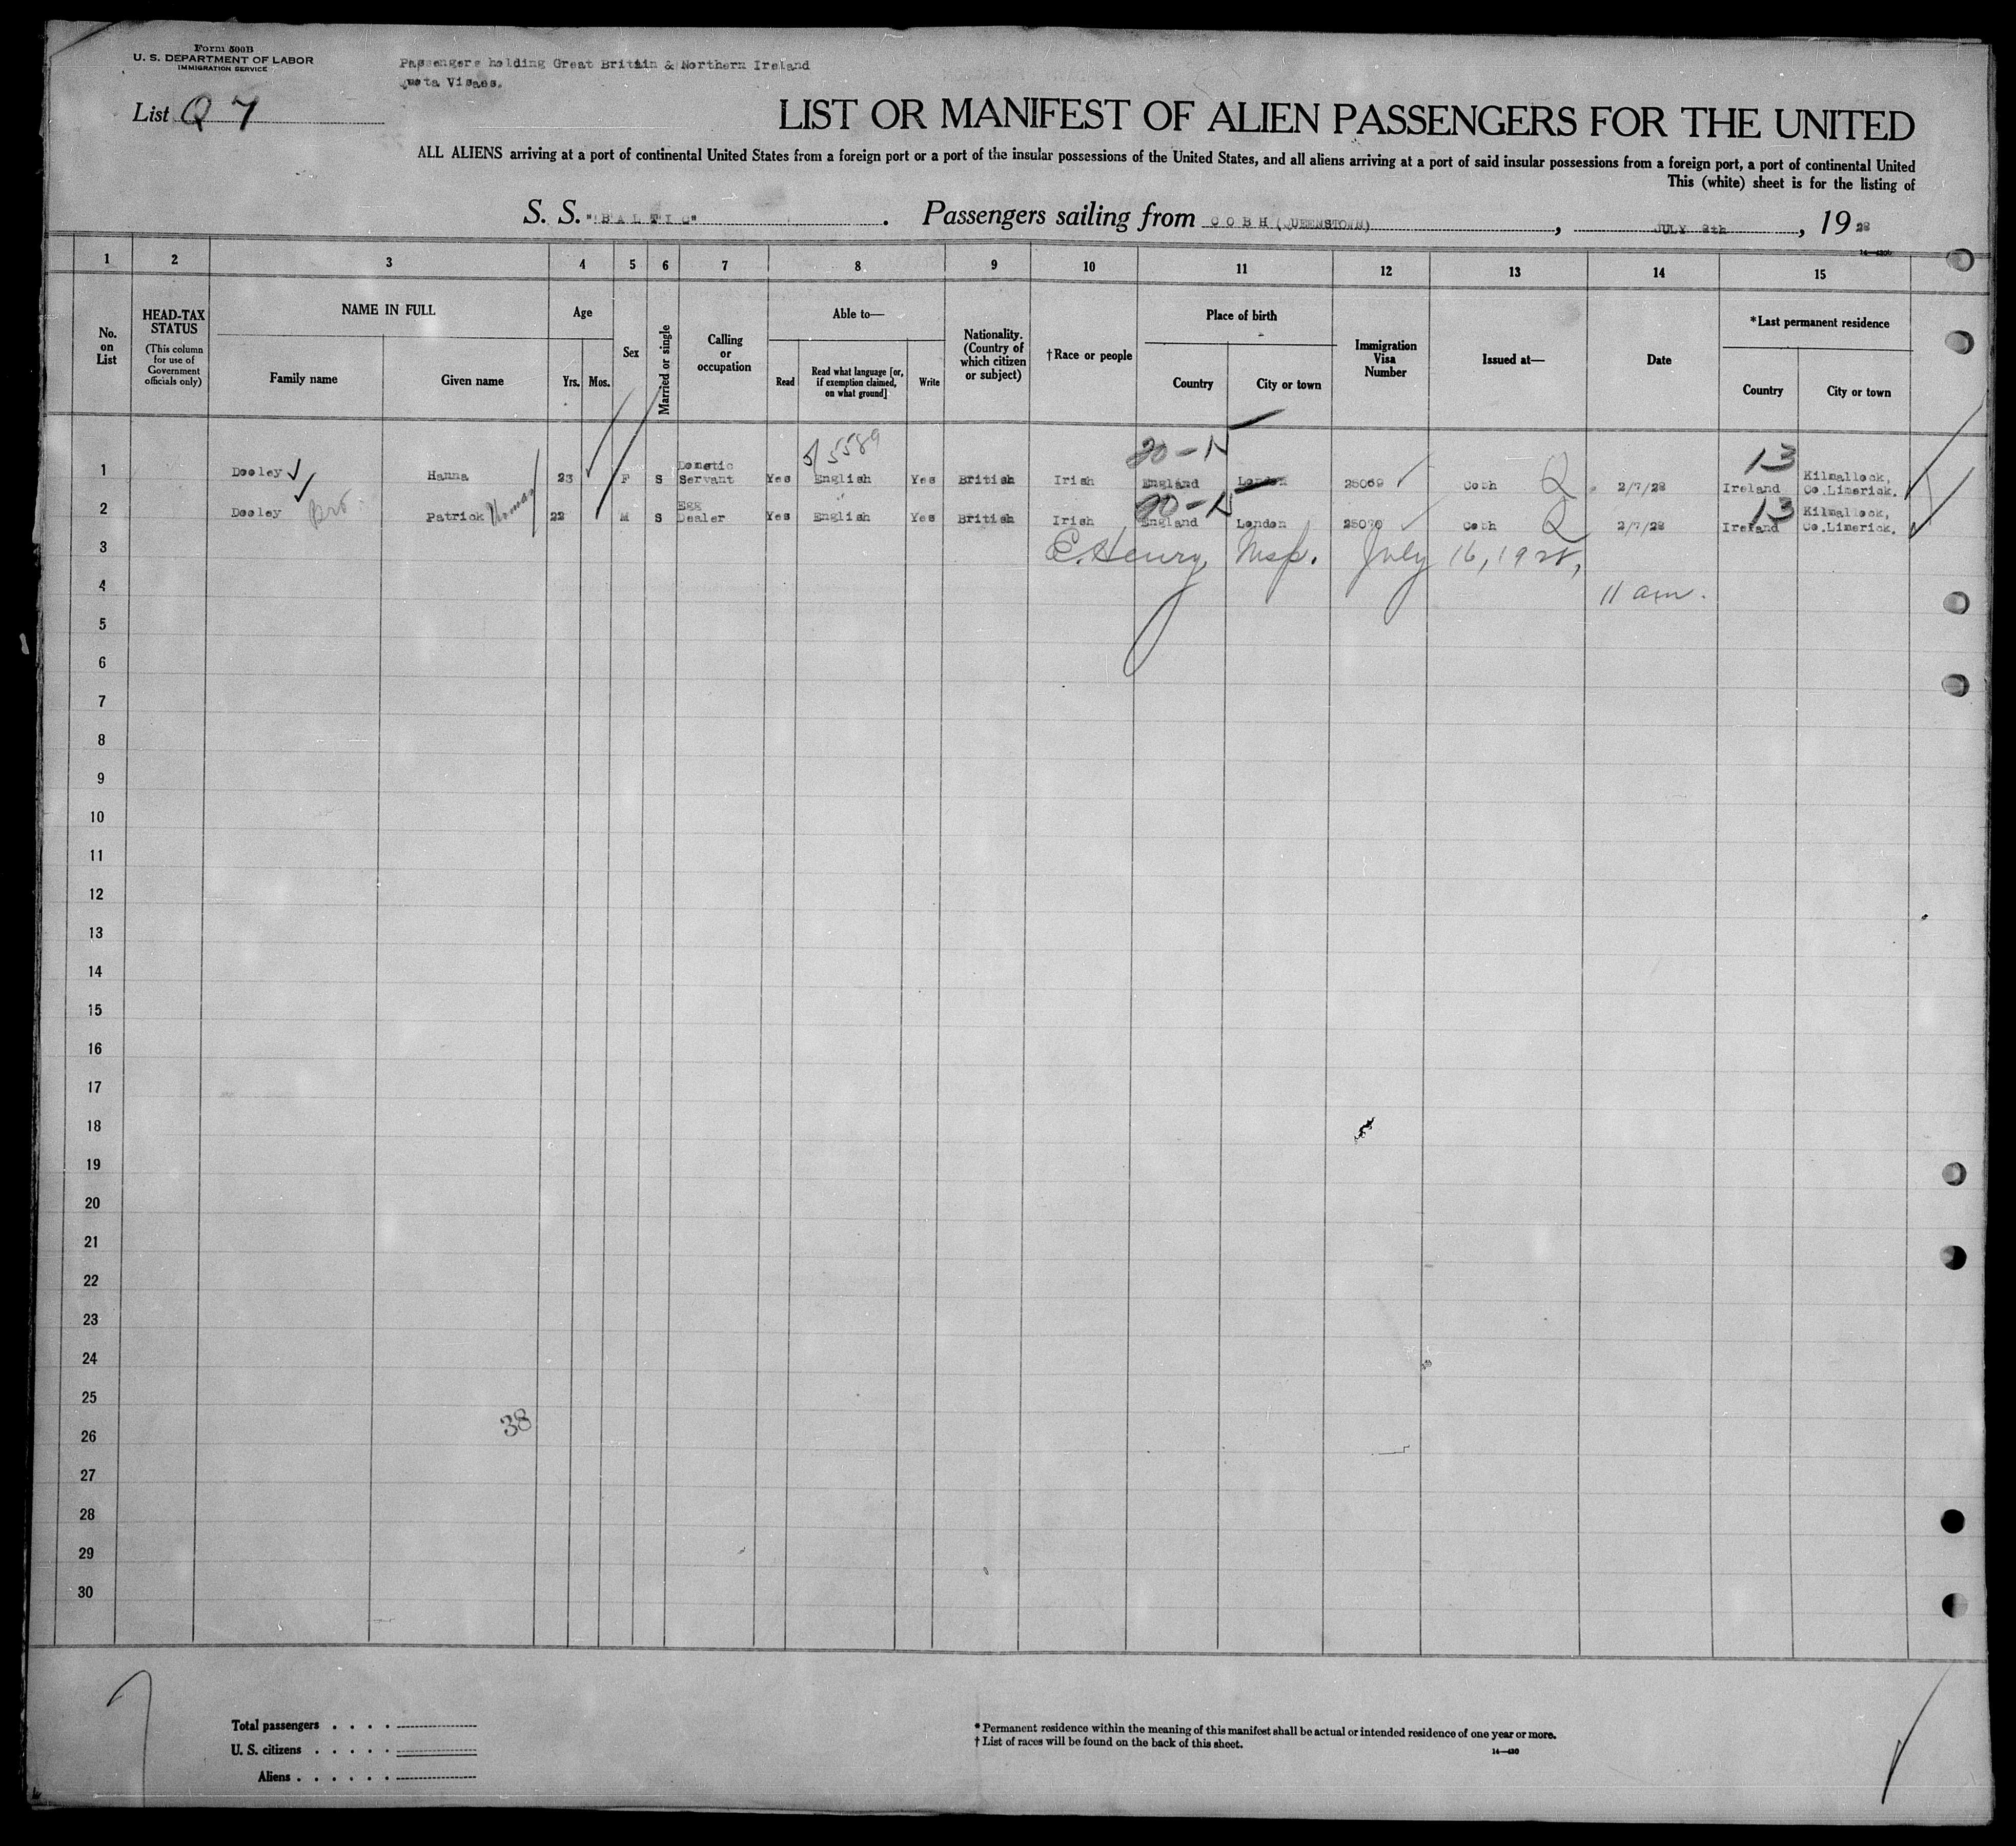 Form 500B
U. S. DEPARTMENT OF LABOR
IMMIGRATION SERVICE
Passengers holding Great Britain & Northern Ireland
Quota Visaes.
List Q 7
LIST OR MANIFEST OF ALIEN PASSENGERS FOR THE UNITED
ALL ALIENS arriving at a port of continental United States from a foreign port or a port of the insular possessions of the United States, and all aliens arriving at a port of said insular possessions from a foreign port, a port of continental United
This (white) sheet is for the listing of
S. S. "BALTIC". Passengers sailing from COBH (QUEENSTOWN), JULY 8th, 1928
1 2 3 4 5 6 7 8 9 10 11 12 13 14 15
No. on List
HEAD-TAX STATUS
(This column for use of Government officials only)
NAME IN FULL
Family name
Given name
Age
Yrs.
Mos.
Sex
Married or single
Calling or occupation
Able to—
Read
Read what language [or, if exemption claimed, on what ground]
Write
Nationality. (Country of which citizen or subject)
†Race or people
Place of birth
Country
City or town
Immigration Visa Number
Issued at—
Date
*Last permanent residence
Country
City or town
5/5589
20-15
13
1 Dooley Hanna 23 F S Domstic Servant Yes English Yes British Irish England London 25069 Cobh Q 2/7/28 Ireland Kilmallock, Co.Limerick.
20-15
13
2 Dooley Bro Patrick Thomas 22 M S Egg Dealer Yes English Yes British Irish England London 25070 Cobh Q 2/7/28 Ireland Kilmallock, Co.Limerick.
3 E. Henry, Insp. July 16, 1928,
4 11 am.
5
6
7
8
9
10
11
12
13
14
15
16
17
18
19
20
21
22
23
24
25
38
26
27
28
29
30
Total passengers
U. S. citizens
Aliens
* Permanent residence within the meaning of this manifest shall be actual or intended residence of one year or more.
† List of races will be found on the back of this sheet.
14—430